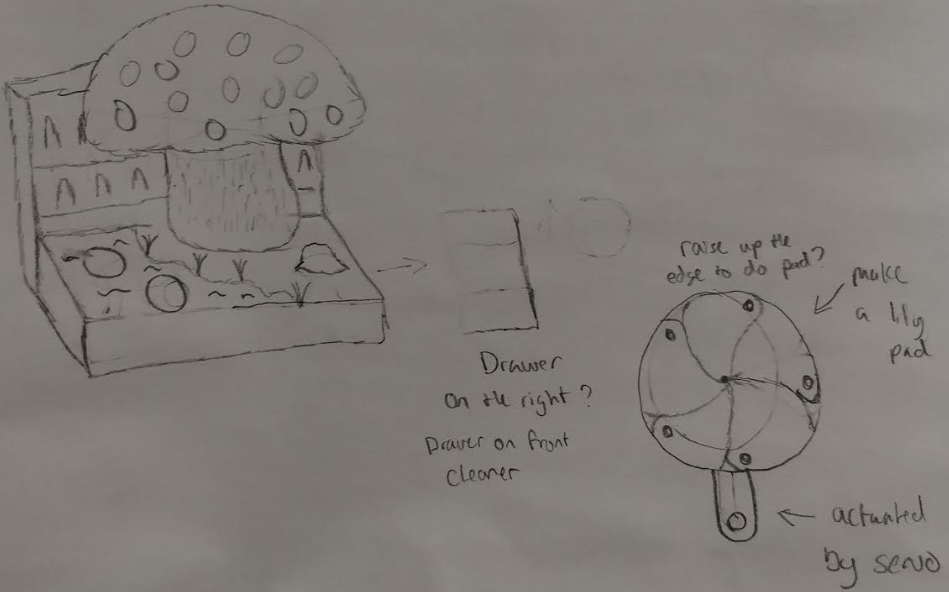 Drawer
on the right?
Drawer on front
cleaner
raise up the
edge to do pad?
make
a lily
pad
actuated
by servo